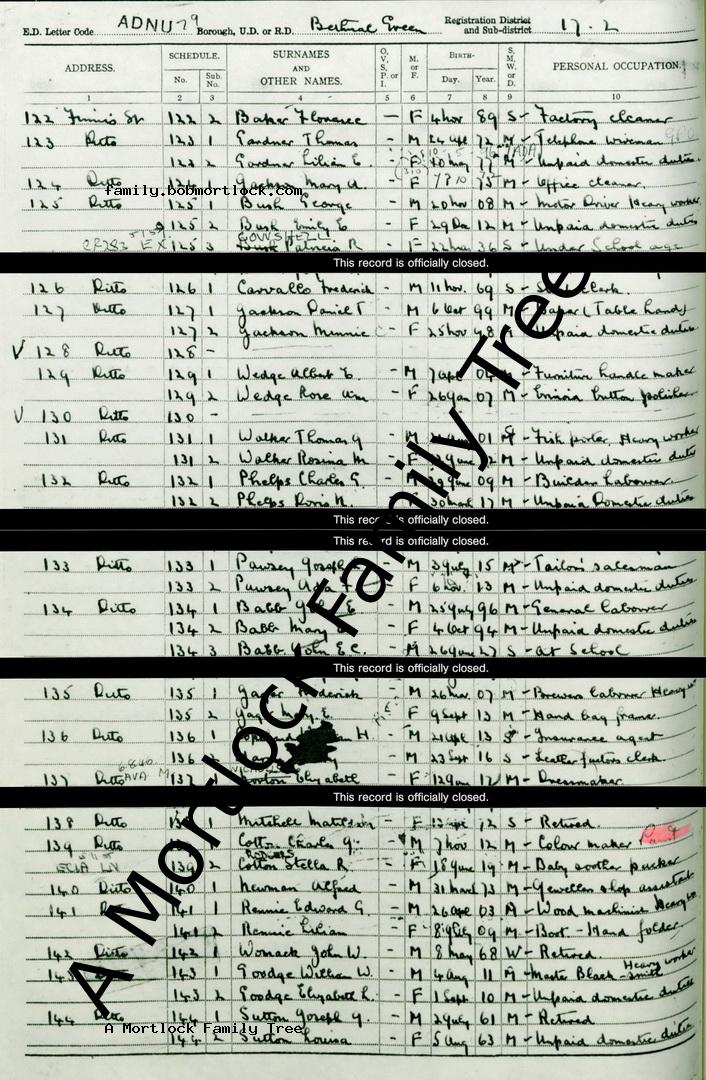 E.D. Letter Code ADNU 79 Borough, U.D. or R.D. Bethnal Green Registration District and Sub-district 17.2
ADDRESS. SCHEDULE. No. Sub. No. SURNAMES AND OTHER NAMES. O, V, S, P, or I. M. or F. BIRTH- Day. Year. S, M, W, or D. PERSONAL OCCUPATION.
1 2 3 4 5 6 7 8 9 10
122 St 122 2 Baker Florance — F 4 Nov 89 S - Factory cleaner
123 Ditto 123 1 Gardner Thomas - M 24 Apl 72 M - Telephone wireman GPO
123 2 Gardner Lilian E. - F 77 M - Unpaid domestic duties
124 Ditto 124 Mary A - F 75 M - Office cleaner.
family.bobmortlock.com
125 Ditto 125 1 Bush George - M 20 Nov 08 M - Motor Driver Heavy worker
125 2 Bush Emily E - F 29 De 12 M - Unpaid domestic duties
CR283 EX 125 3 Bush Patricia R - F 22 Mar 36 S - Under School age
This record is officially closed.
126 Ditto 126 1 Carvallo Frederick - M 11 Nov. 69 S - Clerk.
127 Ditto 127 1 Jackson Daniel T - M 6 Oct 99 M - (Table hand)
127 2 Jackson Minnie C - F 25 Nov 98 - Unpaid domestic duties
V 128 Ditto 128 -
129 Ditto 129 1 Wedge Albert E. - M 7 Apl M - Furniture handle maker
129 2 Wedge Rose - F 26 Jan 07 M - button polisher
V 130 Ditto 130 -
131 Ditto 131 1 Walker Thomas G - M 01 M - Fish porter, Heavy worker
131 2 Walker Rosina M - F M - Unpaid domestic duties
132 Ditto 132 1 Phelps Charles G. - M 29 June 09 M - Builders Labourer.
132 2 Phelps Doris N. - F 30 Mch 17 M - Unpaid Domestic duties
This record is officially closed.
This record is officially closed.
133 Ditto 133 1 Pawsey Joseph - M 3 July 15 M - Tailors salesman
133 2 Pawsey Ada F 6 Nov. 13 M - Unpaid domestic duties
134 Ditto 134 1 Babb E - M 25 July 96 M - General labourer
134 2 Babb Mary - F 4 Oct 94 M - Unpaid domestic duties
134 3 Babb John E.C. - M 26 June 27 S - At School
This record is officially closed.
135 Ditto 135 1 Frederick - M 26 Mar. 07 M - Brewers labourer Heavy
135 2 Mary E. - F 9 Sept 13 M - Hand bag framer.
136 Ditto 136 1 H - M 21 Apl 13 S - Insurance agent
136 2 - F 23 Sept 16 S - Leather factors clerk.
137 Ditto 137 1 Elizabeth F 12 Jan 17 M - Dressmaker.
This record is officially closed.
138 Ditto 1 Mitchell - F 72 S - Retired.
139 Ditto 1 Cotton Charles G. - M 7 Nov 12 M - Colour maker
139 2 Cotton Stella R. - F 18 June 19 M - Baby soother packer
140 Ditto 140 1 Newman Alfred - M 31 March 73 M - Jewellers shop assistant
141 Ditto 141 1 Rennie Edward G. - M 26 Apl 03 M - Wood machinist Heavy
141 2 Rennie Lilian - F 8 July 09 M - Boot - Hand folder.
142 Ditto 142 1 Womack John W. - M 8 May 68 W - Retired.
143 Ditto 143 1 Goodge William W. - M 4 Aug 11 M - Master Black-smith Heavy worker
143 2 Goodge Elizabeth L. - F 1 Sept 10 M - Unpaid domestic duties
144 Ditto 144 1 Sutton Joseph G. - M 29 July 61 M - Retired
144 2 Sutton Louisa - F 5 Aug 63 M - Unpaid domestic duties
A Mortlock Family Tree
A Mortlock Family Tree